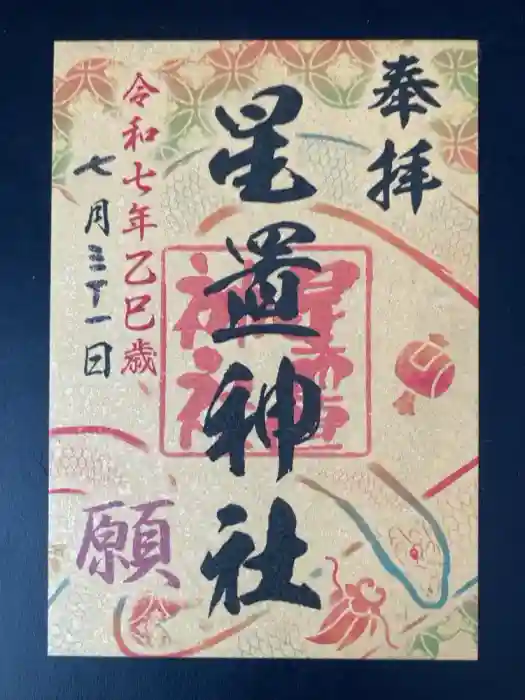 奉拝
星置神社
星置神社
令和七年乙巳歳
七月三十一日
願